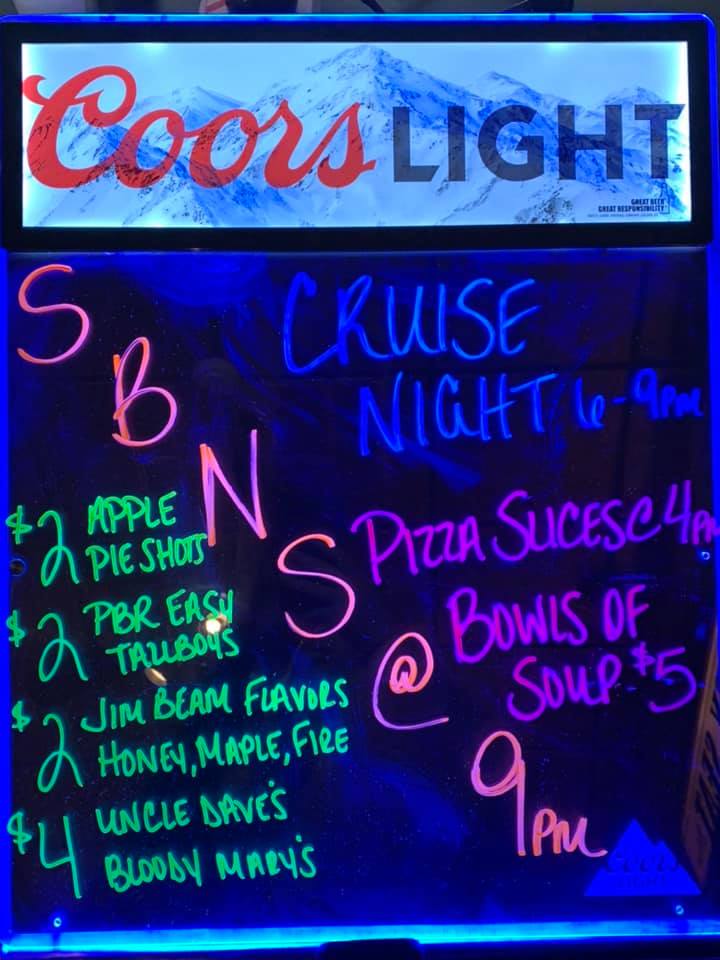 Coors LIGHT
GREAT BEER
GREAT RESPONSIBILITY
CRUISE
NIGHT 6-9PM
S
B
N
S
@
9PM
$2 APPLE
PIE SHOTS
$2 PBR EASY
TALLBOYS
$2 JIM BEAM FLAVORS
HONEY, MAPLE, FIRE
$4 UNCLE DAVE'S
BLOODY MARY'S
PIZZA SLICES @ 4PM
BOWLS OF
SOUP $5
Coors
LIGHT